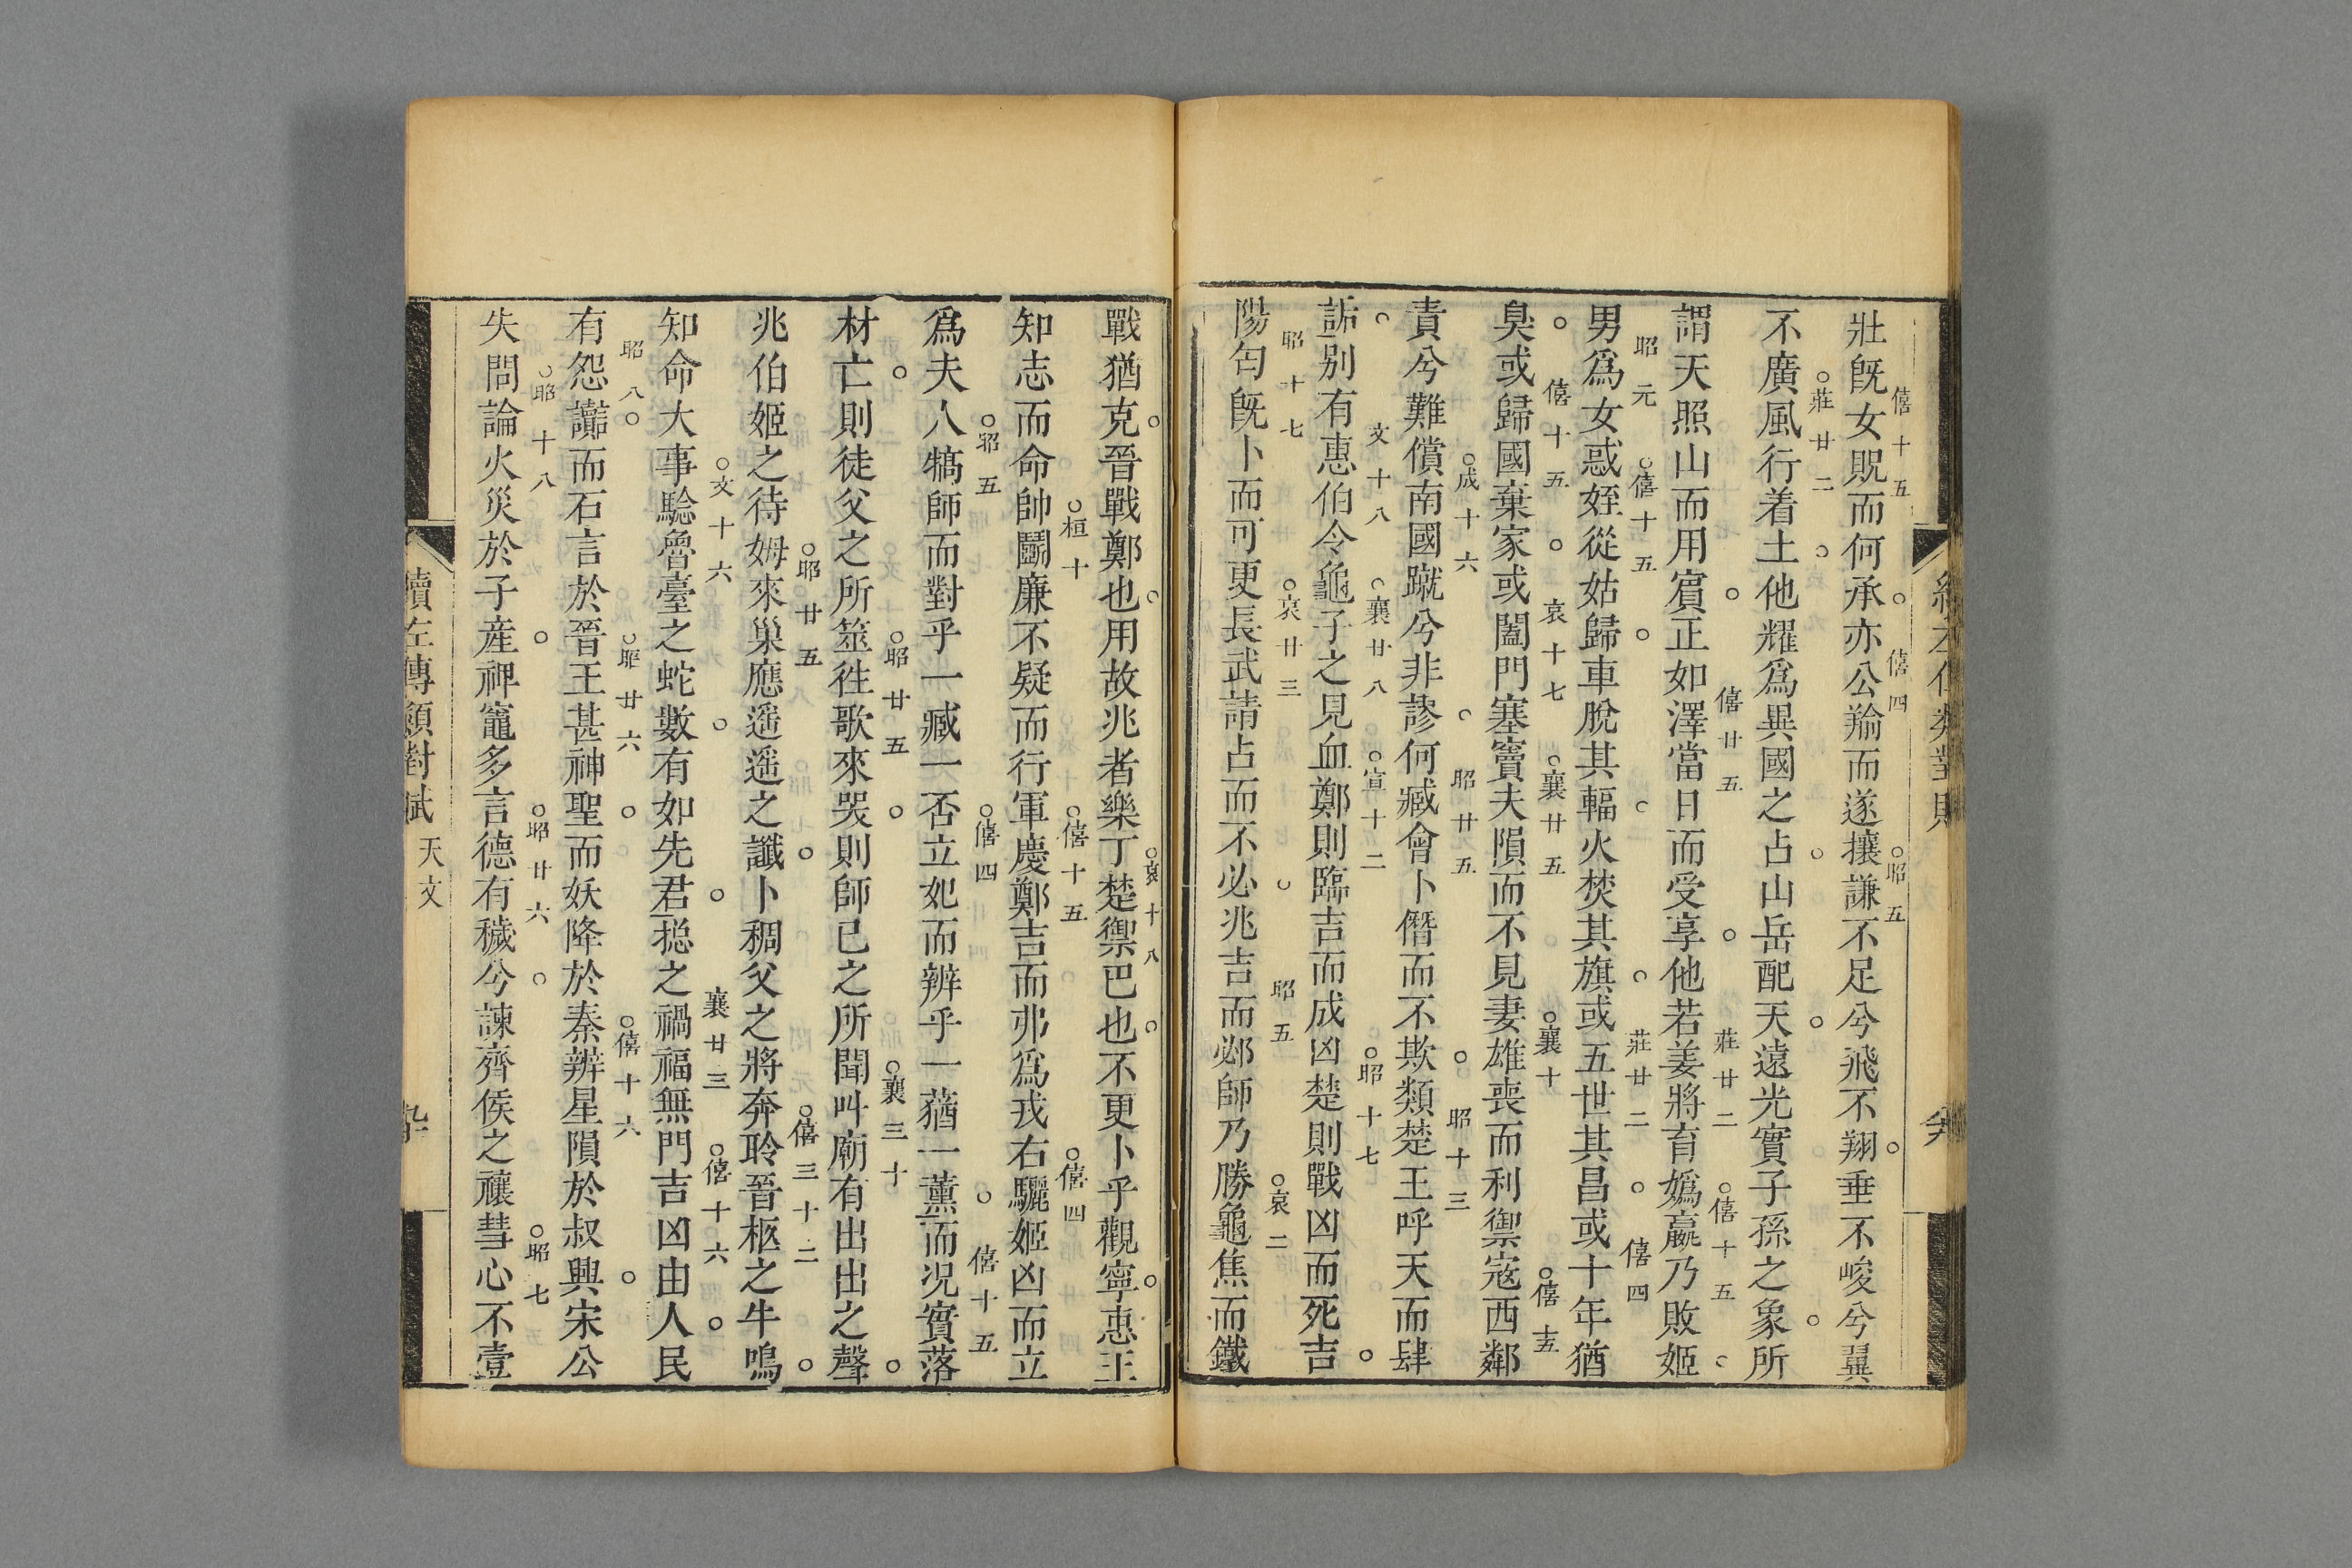 壯旣女貺而何承亦公羭而遂攘謙不足兮飛不翔垂不峻兮翼
僖十五 僖四 昭五
不廣風行着土他耀爲異國之占山岳配天遠光實子孫之象所
莊廿二
謂天照山而用賔正如澤當日而受享他若姜將育嬀嬴乃敗姬
僖廿五 莊廿二 僖十五
男爲女惑姪從姑歸車脫其輻火焚其旗或五世其昌或十年猶
昭元 僖十五 莊廿二 僖四
臭或歸國棄家或闔門塞竇夫隕而不見妻雄喪而利禦寇西鄰
僖十五 哀十七 襄廿五 襄十 僖十五
責兮難償南國蹴兮非謬何臧會卜僭而不欺類楚王呼天而肆
成十六 昭廿五 昭十三
詬别有惠伯令龜子之見血鄭則臨吉而成凶楚則戰凶而死吉
文十八 襄廿八 宣十二 昭十七
陽匄旣卜而可更長武請占而不必兆吉而邲師乃勝龜焦而鐵
昭十七 哀廿三 昭五 哀二
戰猶克晉戰鄭也用故兆者樂丁楚禦巴也不更卜乎觀寧惠王
哀十八
知志而命帥鬭廉不疑而行軍慶鄭吉而弗爲戎右驪姬凶而立
桓十 僖十五 僖四
爲夫人犒師而對乎一臧一否立妃而辨乎一蕕一薰而况實落
昭五 僖四 僖十五
材亡則徒父之所筮徃歌來哭則師已之所聞叫廟有出出之聲
昭廿五 襄三十
兆伯姬之待姆來巢應遥遥之讖卜稠父之將奔聆晉柩之牛鳴
昭廿五 僖三十二
知命大事騐魯臺之蛇數有如先君揔之禍福無門吉凶由人民
文十六 襄廿三 僖十六
有怨讟而石言於晉王甚神聖而妖降於秦辨星隕於叔興宋公
昭八 昭廿六 僖十六
失問論火災於子產裨竈多言德有穢兮諫齊侯之禳彗心不壹
昭十八 昭廿六 昭七
續左傳類對賦 天文